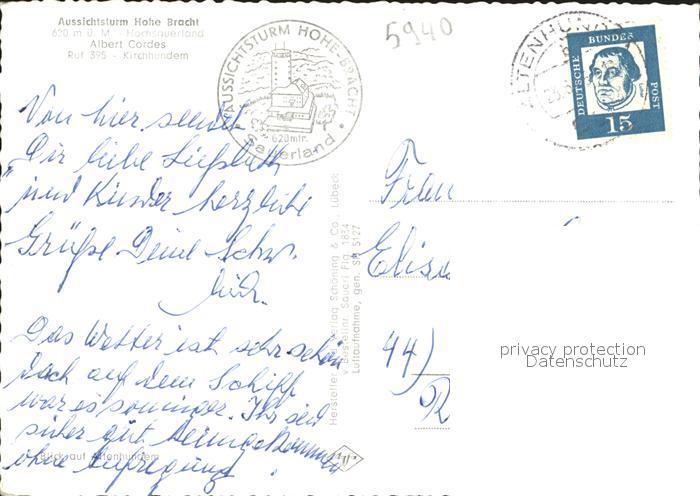 Aussichtsturm Hohe Bracht
620 m ü. M. - Hochsauerland
Albert Cordes
Ruf 395 - Kirchhundem
AUSSICHTSTURM HOHE-BRACHT
620mtr.
Sauerland
5940
ALTENHUNDEM
DEUTSCHE BUNDESPOST
15
Von hier sendet
Dir liebe Liesbeth
und Kinder herzliche
Grüße Deine Schw.
Das Wetter ist sehr schön
doch auf dem Schiff
war es sonniger. Ihr seid
sicher gut heimgekommen
ohne Aufregung
Blick auf Altenhundem
Schöning & Co., Lübeck
Luftaufnahme, gen. SH 5/27
Frau
Elisa
44)
privacy protection
Datenschutz